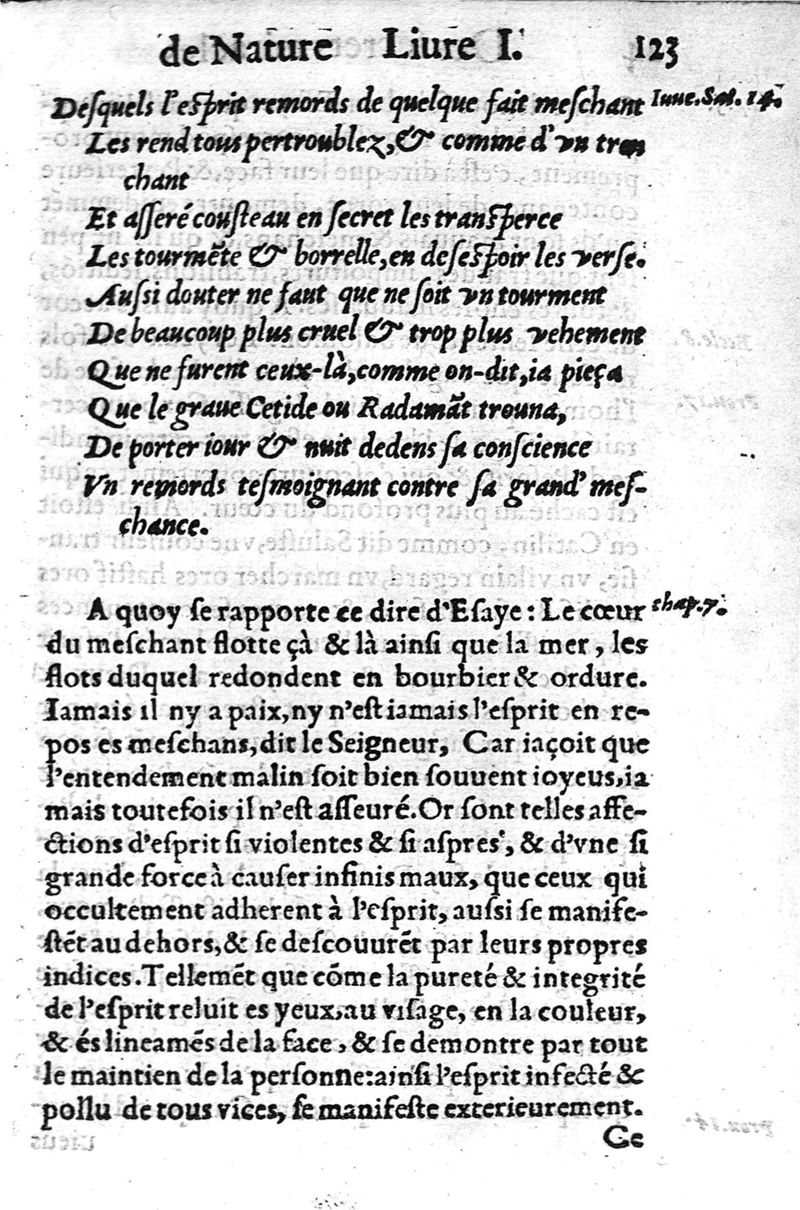 de Nature Liure I. 123
Deſquels l'eſprit remords de quelque fait meſchant Iuue. Sat. 14.
Les rend tous pertroublez, & comme d'vn tran
chant
Et aſſeré couſteau en ſecret les tranſperce
Les tourmẽte & borrelle, en deſeſpoir les verſe.
Auſsi douter ne faut que ne ſoit vn tourment
De beaucoup plus cruel & trop plus vehement
Que ne furent ceux-là, comme on-dit, ia pieça
Que le graue Cetide ou Radamãt trouua,
De porter iour & nuit dedens ſa conſcience
Vn remords teſmoignant contre ſa grand' meſ-
chance.
A quoy ſe rapporte ce dire d'Eſaye: Le cœur chap. 7.
du meſchant flotte çà & là ainſi que la mer, les
flots duquel redondent en bourbier & ordure.
Iamais il ny a paix, ny n'eſt iamais l'eſprit en re-
pos es meſchans, dit le Seigneur, Car iaçoit que
l'entendement malin ſoit bien ſouuent ioyeus, ia
mais toutefois il n'eſt aſſeuré. Or ſont telles affe-
ctions d'eſprit ſi violentes & ſi aſpres, & d'vne ſi
grande force à cauſer infinis maux, que ceux qui
occultement adherent à l'eſprit, auſsi ſe manife-
ſtẽt au dehors, & ſe deſcouurẽt par leurs propres
indices. Tellemẽt que cõme la pureté & integrité
de l'eſprit reluit es yeux, au viſage, en la couleur,
& és lineamẽs de la face, & ſe demontre par tout
le maintien de la perſonne: ainſi l'eſprit infecté &
pollu de tous vices, ſe manifeſte exterieurement.
Ce